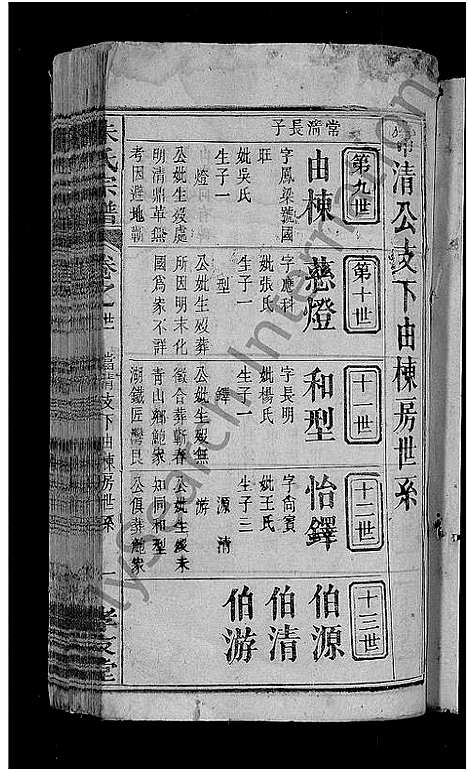 清公支下由棟房世系
第九世
常清長子
由棟
字鳳梁號國
旺
妣吳氏
生子一
燈
公妣生歿處
明清鼎革無
考因避地
第十世
慈燈
字應科
妣張氏
生子一
型
公妣生歿葬
所因明末化
國爲家不詳
十一世
和型
字長明
妣楊氏
生子一
鐸
公妣生歿無
徵合葬蘄春
青山鄉鮑家
湖鐵匠灣艮
十二世
怡鐸
字尚賓
妣王氏
生子三
源 清
游
公妣生歿未
知同和型
公俱葬鮑家
十三世
伯源
伯清
伯游
朱氏宗譜
卷之
當清支下由棟房世系
一
堂
MySearch International